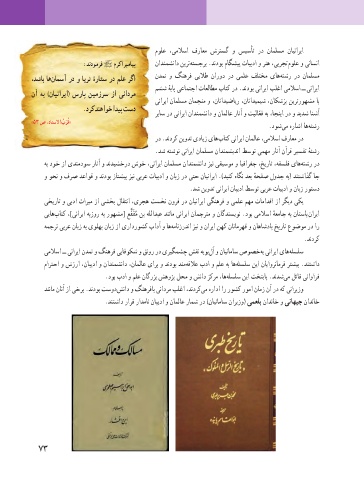 ایرانیان مسلمان در تأسیس و گسترش معارف اسلامی، علوم
انسانی و علوم تجربی، هنر و ادبیات پیشگام بودند. برجسته‌ترین دانشمندان
مسلمان در رشته‌های مختلف علمی در دوران طلایی فرهنگ و تمدن
ایرانی ـ اسلامی اغلب ایرانی بودند. در کتاب مطالعات اجتماعی پایهٔ ششم
با مشهورترین پزشکان، شیمیدانان، ریاضیدانان، و منجمان مسلمان ایرانی
آشنا شدید و در اینجا، به فعالیت و آثار عالمان و دانشمندان ایرانی در سایر
رشته‌ها اشاره می‌شود.
در معارف اسلامی، عالمان ایرانی کتاب‌های زیادی تدوین کردند. در
رشتهٔ تفسیر قرآن آثار مهمی توسط اندیشمندان مسلمان ایرانی نوشته شد.
در رشته‌های فلسفه، تاریخ، جغرافیا و موسیقی نیز دانشمندان مسلمان ایرانی، خوش درخشیدند و آثار سودمندی از خود به
جا گذاشتند (به جدول صفحهٔ بعد نگاه کنید). ایرانیان حتی در زبان و ادبیات عربی نیز پیشتاز بودند و قواعد صرف و نحو و
دستور زبان و ادبیات عربی توسط ادیبان ایرانی تدوین شد.
یکی دیگر از اقدامات مهم علمی و فرهنگی ایرانیان در قرون نخست هجری، انتقال بخشی از میراث ادبی و تاریخی
ایران باستان به جامعهٔ اسلامی بود. نویسندگان و مترجمان ایرانی مانند عبدالله بن مُقَفَّع (مشهور به روزبه ایرانی)، کتاب‌هایی
را در موضوع تاریخ پادشاهان و قهرمانان کهن ایران و نیز اندرزنامه‌ها و آداب کشورداری از زبان پهلوی به زبان عربی ترجمه
کردند.
سلسله‌های ایرانی به‌خصوص سامانیان و آل‌بویه نقش چشمگیری در رونق و شکوفایی فرهنگ و تمدن ایرانی ـ اسلامی
داشتند. بیشتر فرمانروایان این سلسله‌ها به علم و ادب علاقه‌مند بودند و برای عالمان، دانشمندان و ادیبان، ارزش و احترام
فراوانی قائل می‌شدند. پایتخت این سلسله‌ها، مرکز دانش و محل پژوهش بزرگان علم و ادب بود.
وزیرانی که در آن زمان امور کشور را اداره می‌کردند، اغلب مردانی بافرهنگ و دانش‌دوست بودند. برخی از آنان مانند
خاندان جیهانی و خاندان بلعمی (وزیران سامانیان) در شمار عالمان و ادیبان نامدار ایران قرار داشتند.
پیامبر اکرم ﷺ فرمودند:
اگر علم در ستارهٔ ثریا و در آسمان‌ها باشد،
مردانی از سرزمین پارس (ایرانیان) به آن
دست پیدا خواهند کرد.
مسالک و ممالک
تاریخ طبری
۷۳